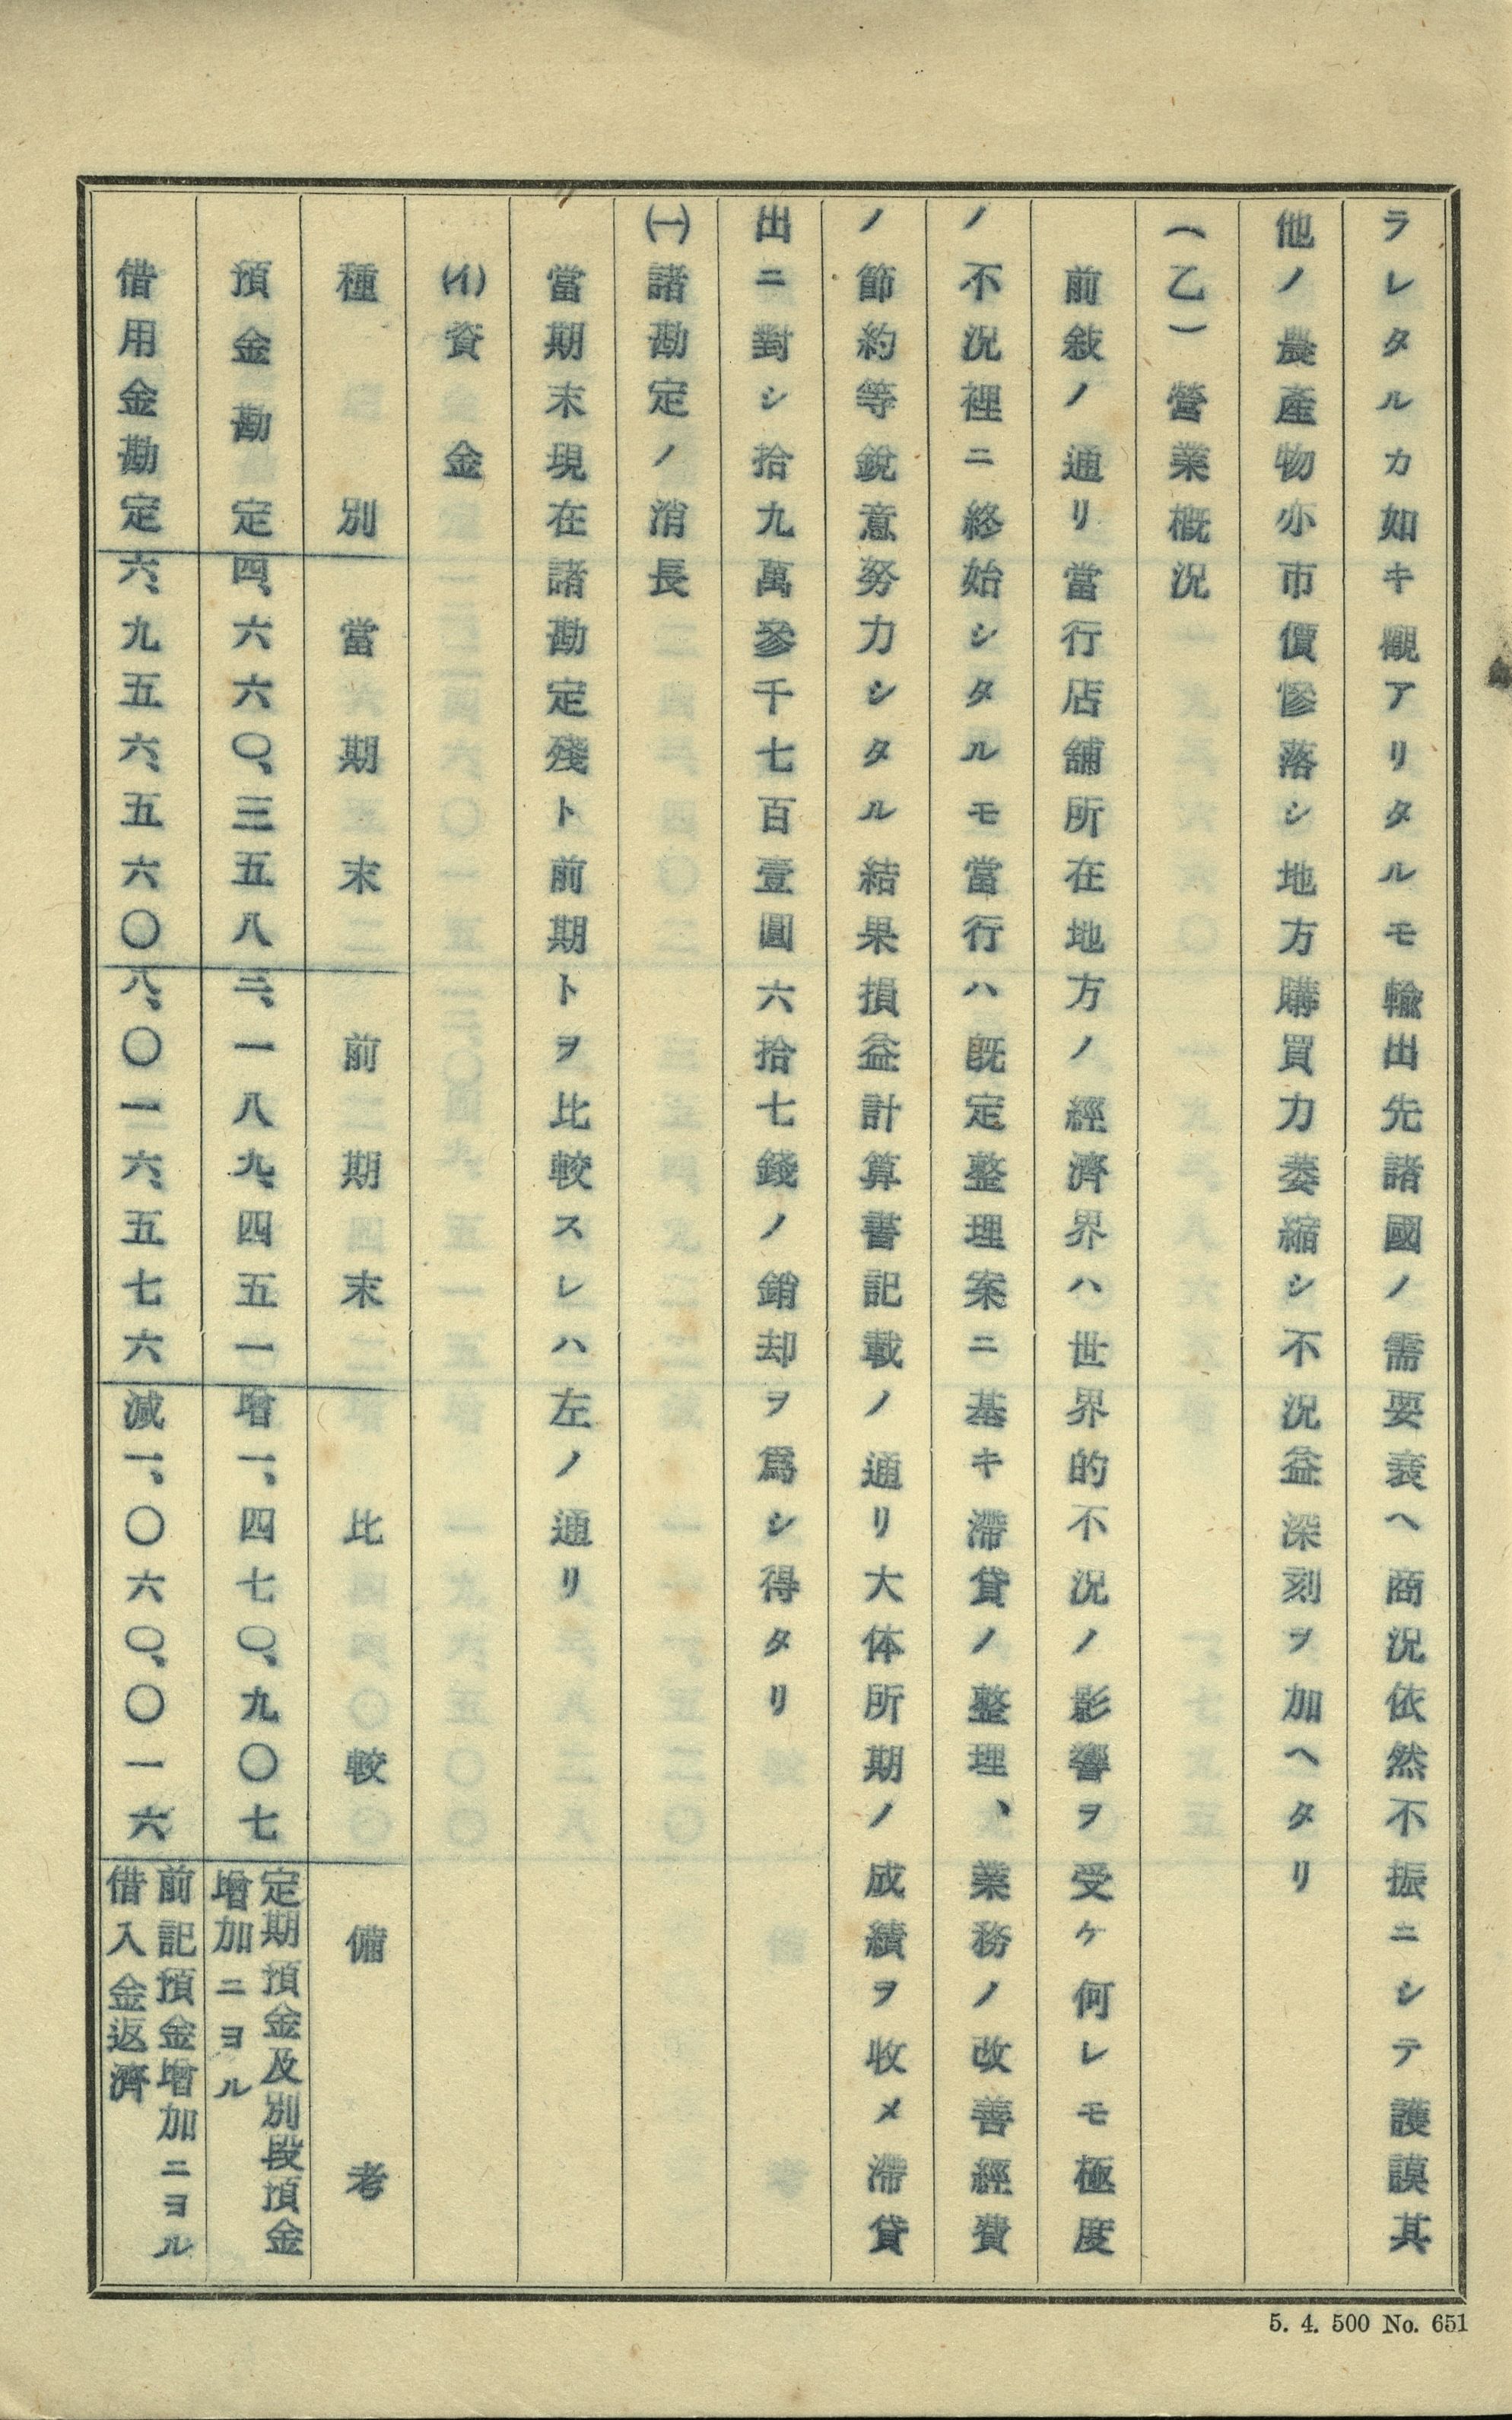 ラレタルカ如キ觀アリタルモ輸出先諸國ノ需要衰ヘ商況依然不振ニシテ護謨其
他ノ農產物亦市價慘落シ地方購買力萎縮シ不況益深刻ヲ加ヘタリ
(乙) 營業概況
前敍ノ通リ當行店舖所在地方ノ經濟界ハ世界的不況ノ影響ヲ受ケ何レモ極度
ノ不況裡ニ終始シタルモ當行ハ旣定整理案ニ基キ滯貸ノ整理、業務ノ改善經費
ノ節約等銳意努力シタル結果損益計算書記載ノ通リ大体所期ノ成績ヲ收メ滯貸
出ニ對シ拾九萬參千七百壹圓六拾七錢ノ銷却ヲ爲シ得タリ
㈠諸勘定ノ消長
當期末現在諸勘定殘ト前期トヲ比較スレハ左ノ通リ
(イ)資金
種別 當期末 前期末 比較 備考
預金勘定 四、六六〇、三五八 三、一八九、四五一 增一、四七〇、九〇七 定期預金及別段預金增加ニヨル
借用金勘定 六、九五六、五六〇 八、〇一六、五七六 減一、〇六〇、〇一六 前記預金增加ニヨル借入金返濟
5. 4. 500 No. 651